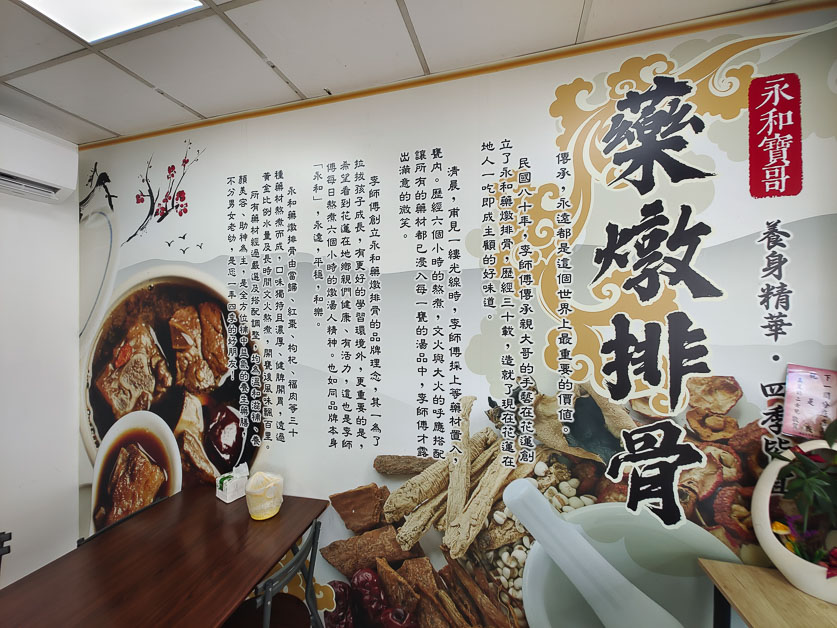 永和寶哥
養身精華・四季皆宜
藥燉排骨
傳承，永遠都是這個世界上最重要的價值。
民國八十年，李師傅傳承親大哥的手藝在花蓮創
立了永和藥燉排骨，歷經三十載，造就了現在花蓮在
地人一吃即成主顧的好味道。
清晨，甫見一縷光線時，李師傅採上等藥材置入，
甕內。歷經六個小時的熬煮，文火與大火的呼應搭配
讓所有的藥材都已浸入每一甕的湯品中，李師傅才露
出滿意的微笑。
李師傅創立永和藥燉排骨的品牌理念，其一為了
拉拔孩子成長，有更好的學習環境外，更重要的是，
希望看到花蓮在地鄉親們健康、有活力，這也是李師
傅每日熬煮六個小時的燉湯人精神。也如同品牌本身
「永和」，永遠，平穩，和樂。
永和藥燉排骨由當歸、紅棗、枸杞、福肉等三十
種藥材熬煮而成，口味獨特且濃厚，健脾開胃，透過
黃金比例水量及長時間文火熬煮，開甕後風味飄百里。
所有藥材經過嚴選及搭配調整，均為溫和滋補、養
顏美容、助神為主，是全方位補中益氣的養生藥膳，
不分男女老幼，是您一年四季的好朋友！